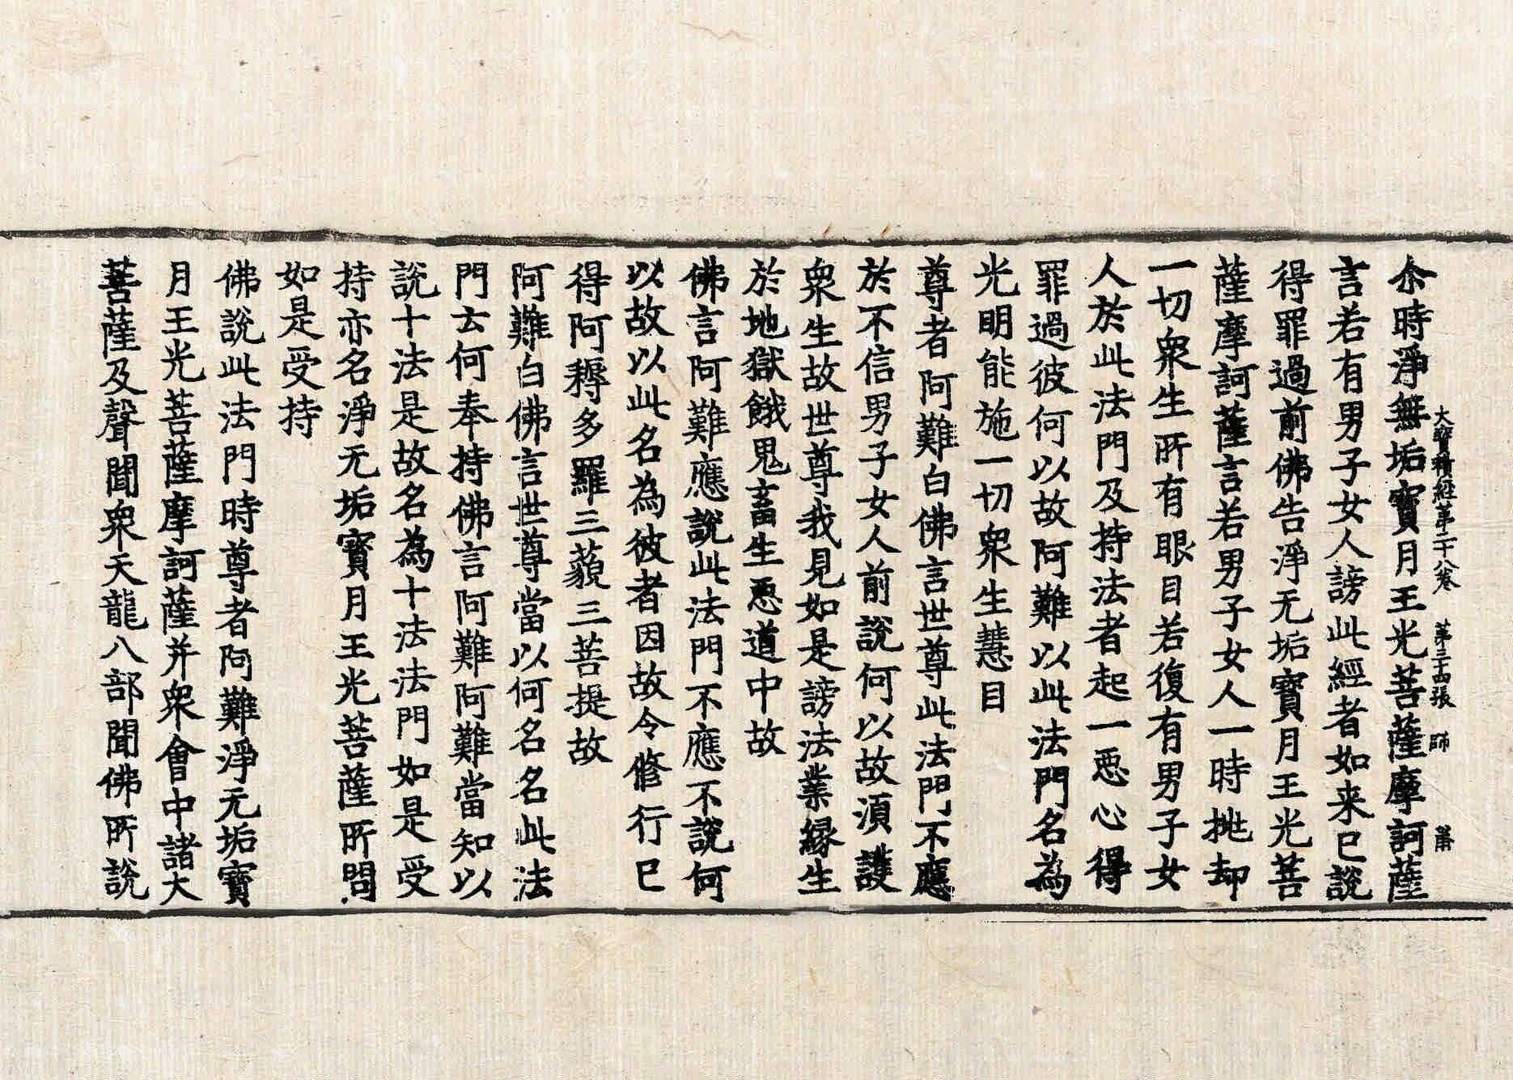 大寶積經第二十八卷 第三十四張 師 蕭
尒時淨無垢寶月王光菩薩摩訶薩
言若有男子女人謗此經者如来巳說
得罪過前佛告淨无垢寶月王光菩
薩摩訶薩言若男子女人一時挑却
一切衆生所有眼目若復有男子女
人於此法門及持法者起一惡心得
罪過彼何以故阿難以此法門名為
光明能施一切衆生慧目
尊者阿難白佛言世尊此法門不應
於不信男子女人前說何以故湏護
衆生故世尊我見如是謗法業緣生
於地獄餓鬼畜生惡道中故
佛言阿難應說此法門不應不說何
以故以此名為彼者因故令修行巳
得阿耨多羅三藐三菩提故
阿難白佛言世尊當以何名名此法
門云何奉持佛言阿難阿難當知以
說十法是故名為十法法門如是受
持亦名淨无垢寶月王光菩薩所問
如是受持
佛說此法門時尊者阿難淨无垢寶
月王光菩薩摩訶薩并衆會中諸大
菩薩及聲聞衆天龍八部聞佛所說